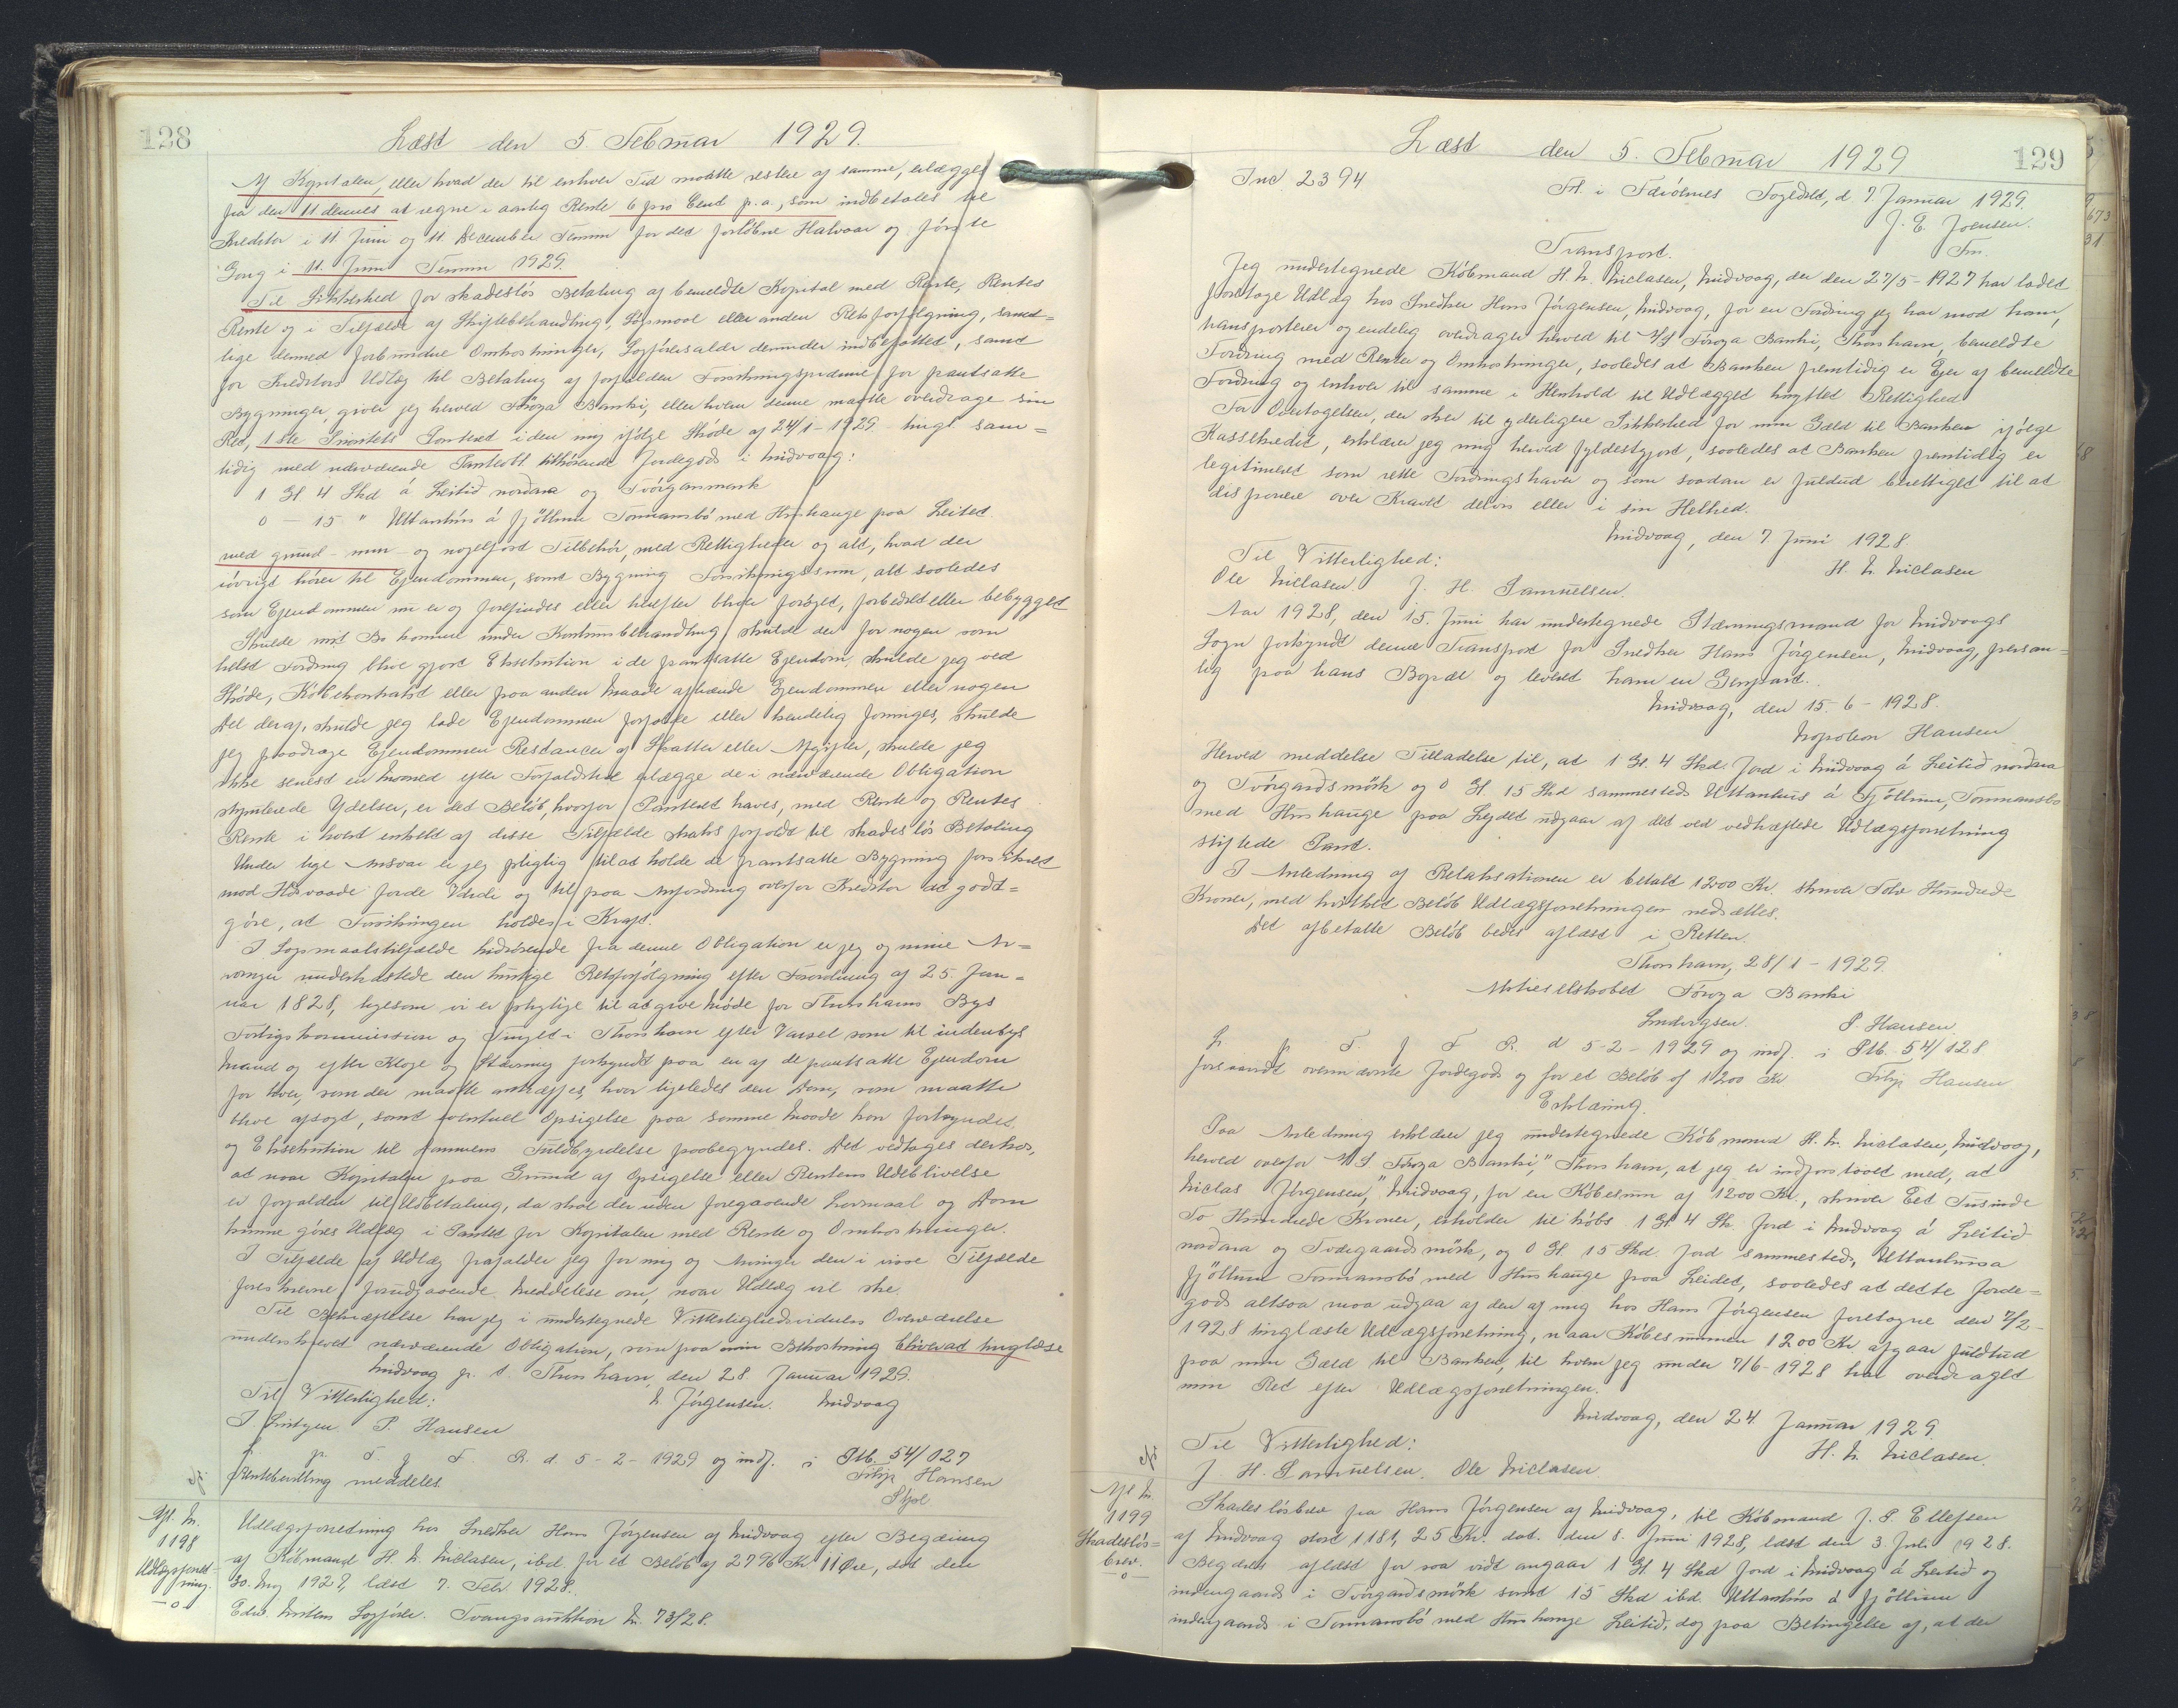 128
Læst den 5. Februar 1929.
Af Kapitalen, eller hvad der til enhver Tid maatte restere af samme, erlægges
fra den 11 dennes at regne i aarlig Rente 6 pro Cent p.a., som indbetales til
Kreditor i 11. Juni og 11. December Termin for det forløbne Halvaar og første
Gang i 11. Juni Termin 1929.
Til Sikkerhed for skadesløs Betaling af bemeldte Kapital med Rente, Rentes
Rente og i Tilfælde af Skiftebehandling, Søgsmaal eller anden Retsforfølgning, samt-
lige dermed forbundne Omkostninger, Sagførersalær derunder indbefattet, samt
for Kreditors Udlæg til Betaling af forfalden Forsikringspræmie for pantsatte
Bygninger, giver jeg herved Føroya Banki, eller hvem denne maatte overdrage sin
Ret, 1ste Prioritets Panteret i den mig ifølge Skøde af 24/1-1929 tingl. sam-
tidig med nærværende Panteobl. tilhørende Jordegods i Midvaag:
1 Gl 4 Skd á Leitið norðara og Tvørgarmørk
0 - 15 " Uttanhús á fjøllum Tormansbø med Hushauge paa Leitet
med grund- mur- og nagelfast Tilbehør, med Rettigheder og alt, hvad der
iøvrigt hører til Ejendommen, samt Bygning Forsikringssum, alt saaledes
som Ejendommen nu er og forefindes eller herefter bliver forøget, forbedret eller bebygget
Skulde mit Bo komme under Konkursbehandling, skulde der for nogen som
helst Fordring blive gjort Eksekution i de pantsatte Ejendom, skulde jeg ved
Skøde, Købekontrakt eller paa anden Maade afhænde Ejendommen eller nogen
Del deraf, skulde jeg lade Ejendommen forfalde eller kendelig forringes, skulde
jeg paadrage Ejendommen Restancer af Skatter eller Afgifter, skulde jeg
ikke senest en Maaned efter Forfaldstid erlægge de i nærværende Obligation
stipulerede Ydelser, er det Beløb, hvorfor Panteret haves, med Rente og Rentes
Rente i hvert enkelt af disse Tilfælde straks forfaldt til skadesløs Betaling
Under lige Ansvar er jeg pligtig til at holde de pantsatte Bygning forsikret
mod Ildsvaade fords Værdi og til paa Anfordring overfor Kreditor at godt-
gøre, at Forsikringen holdes i Kraft.
I Søgsmaalstilfælde hidrørende fra denne Obligation er jeg og mine Ar-
vinger underkastede den hurtige Retsforfølgning efter Forordning af 25 Jan-
uar 1828, ligesom vi er pligtige til at give Møde for Thorshavns Bys
Forligskommission og Tinget i Thorshavn efter Varsel som til indenbys
Mand og efter Klage og Stævning forkyndt paa en af de pantsatte Ejendom
for hver, som der maatte antræffes, hvor ligeledes den Dom, som maatte
blive afsagt, samt eventuel Opsigelse paa samme Maade kan forkyndes,
og Eksekution til Dommens Fuldbyrdelse paabegyndes. Det vedtages derhos,
at naar Kapitalen paa Grund af Opsigelse eller Rentens Udeblivelse
er forfalden til Udbetaling, da skal der uden foregaaende Lovmaal og Dom
kunne gøres Udlæg i Pantet for Kapitalen med Rente og Omkostninger.
I Tilfælde af Udlæg frafalder jeg for mig og Arvinger den i visse Tilfælde
foreskrevne forudgaaende Meddelelse om, naar Udlæg vil ske.
Til Bekræftelse har jeg i undertegnede Vitterlighedsvidners Overværelse
underskrevet nærværende Obligation, som paa min Bekostning bliver at tinglæse
Midvaag p. t. Thorshavn, den 28. Januar 1929.
Til Vitterlighed: N Jørgensen. Midvaag
P. Hansen
L. p. T. f. F. R. d. 5-2-1929 og indf. i Ptb. 54/127
Rentebevilling meddeles. Filip Hansen
Stpl
Afl. Nr.
1198
Udlægsforret-
ning.
-o-
Udlægsforretning hos Snedker Hans Jørgensen af Midvaag efter Begæring
af Købmand H. N. Niclasen, ibd. for et Beløb af 2796 Kr 11 Øre, dat den
30. Maj 1927, læst 7. Febr 1928.
Edw. Mitens Sagfører. Tvangsauktion Nr. 73/28.
129
Læst den 5. Februar 1929
Ind. 2394
Frt. i Færøernes Fogedret, d. 7. Januar 1929.
J. E. Joensen.
Fm.
Transport.
Jeg undertegnede Købmand H. N. Niclasen, Midvaag, der den 27/5-1927 har ladet
foretage Udlæg hos Snedker Hans Jørgensen, Midvaag, for en Fordring jeg har mod ham,
transporterer og endelig overdrager herved til A/S Føroya Banki, Thorshavn, bemeldte
Fordring med Renter og Omkostninger, saaledes at Banken fremtidig er Ejer af bemeldte
Fordring og enhver til samme i Henhold til Udlægget knyttet Rettighed
For Overtagelsen, der sker til yderligere Sikkerhed for min Gæld til Banken ifølge
Kassekredit, erklærer jeg mig herved fyldestgjort, saaledes at Banken fremtidig er
legitimeret som rette Fordringshaver og som saadan er fuldud berettiget til at
disponere over Kravet delvis eller i sin Helhed.
Midvaag, den 7 Juni 1928.
Til Vitterlighed: H. N. Niclasen
Ole Niclasen J. H. Samuelsen.
Aar 1928, den 15. Juni har undertegnede Stævningsmand for Midvaags
Sogn forkyndt denne Transport for Snedker Hans Jørgensen, Midvaag, person-
lig paa hans Bopæl og leveret ham en Genpart.
Midvaag, den 15.-6-1928.
Napoleon Hansen
Herved meddelse Tilladelse til, at 1 Gl. 4 Skd. Jord i Midvaag á Leitið norðara
og Tvørgarðsmørk og 0 Gl. 15 Skd sammesteds Uttanhús á Fjøllum, Tormansbø
med Hushauge paa Leydet udgaar af det ved vedhæftede Udlægsforretning
stiftede Pant.
I Anledning af Relaksationen er betalt 1200 Kr. skriver Tolv Hundrede
Kroner, med hvilket Beløb Udlægsforretningen nedsættes.
Det afbetalte Beløb bedes aflæst i Retten.
Thorshavn, 28/1-1929.
Aktieselskabet Føroya Banki
P. Hansen.
L. p. T. f. F. R. d 5-2-1929 og indf. i Ptb. 54/128
forsaavidt ovennævnte Jordegods og for et Beløb af 1200 Kr Filip Hansen
Erklæring.
Paa Anledning erklærer jeg undertegnede Købmand H. N. Niclasen, Midvaag,
herved overfor A/S "Føroya Banki," Thorshavn, at jeg er indforstaaet med, at
Niclas Jørgensen," Midvaag, for en Købesum af 1200 Kr., skriver Eet Tusinde
To Hundrede Kroner, erholder til købs 1 Gl 4 Sk. Jord i Midvaag á Leitið
norðara og Tvøegaardsmørk, og 0 Gl. 15 Skd. Jord sammesteds, Uttanhusa
fjøllum Tormansbø med Hushauge paa Leidet, saaledes at dette Jorde-
gods altsaa maa udgaa af den af mig hos Hans Jørgensen foretagne den 7/2-
1928 tinglæste Udlægsforretning, naar Købesummen 1200 Kr. afgaar fuldtud
paa min Gæld til Banken, til hvem jeg under 7/6-1928 har overdraget
min Ret efter Udlægsforretningen.
Midvaag, den 24. Januar 1929.
Til Vitterlighed: H. N. Niclasen.
J. H. Samuelsen. Ole Niclasen.
Afl. Nr.
1199
Skadesløs-
brev.
-o-
Skadesløsbrev fra Hans Jørgensen af Midvaag, til Købmand J. P. Ellefsen
af Midvaag stort 1181,25 Kr. dat. den 8. Juni 1928, læst den 3. Juli 1928.
Begæres aflæst for saa vidt angaar 1 Gl 4 Skd Jord i Midvaag á Leitið og
indengaards i Tvørgarðsmørk samt 15 Skd ibd. Uttanhús á fjøllum
indengaards i Tormansbø med Hushauge Leitið, dog paa Betingelse af, at der